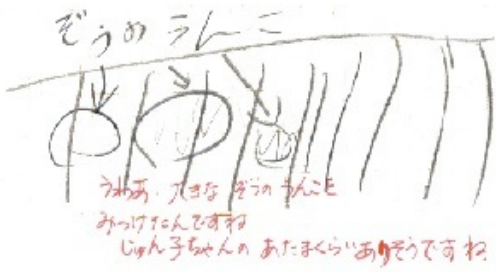 ぞうのうんこ
うわあ、大きなぞうのうんこを
みつけたんですね
じゅん子ちゃんのあたまくらいありそうですね